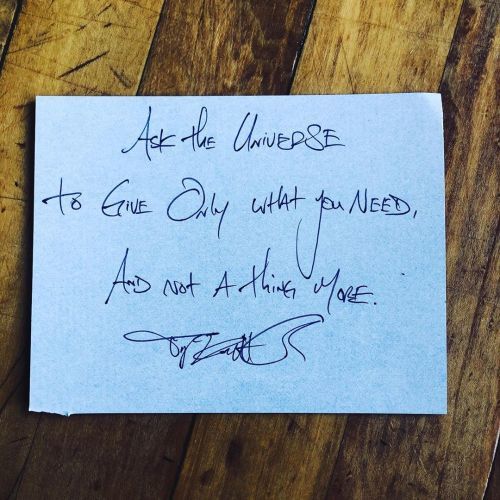 Ask the Universe
to Give Only what you Need,
And not a thing More.